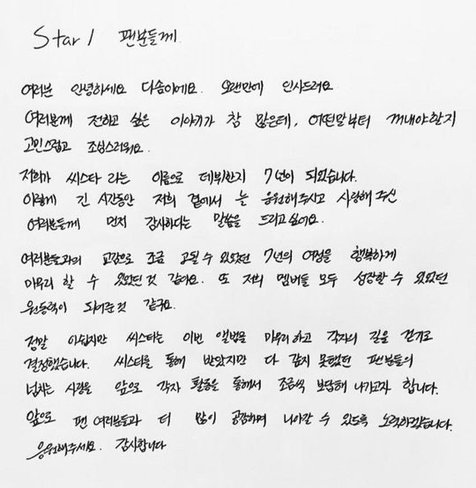 Star 1 팬분들께
여러분 안녕하세요 다솜이에요. 오랜만에 인사드려요
여러분께 전하고 싶은 이야기가 참 많은데, 어떤말부터 꺼내야할지
고민스럽고 조심스러워요.
저희가 씨스타 라는 이름으로 데뷔한지 7년이 되었습니다.
이렇게 긴 시간동안 저희 곁에서 늘 응원해주시고 사랑해 주신
여러분들께 먼저 감사하다는 말씀을 드리고 싶어요.
여러분들과의 교감으로 조금 공될 수 있었던 7년의 여정을 행복하게
마무리 할 수 있었던 것 같아요. 또 저희 멤버들 모두 성장할 수 있었던
원동력이 되어준 것 같구요.
정말 아쉽지만 씨스타는 이번 앨범을 마무리 하고 각자의 길을 걷기로
결정했습니다. 씨스타를 통해 받았지만 다 갚지 못했던 팬분들의
넘치는 사랑을 앞으로 각자 활동을 통해서 조금씩 보답해 나가고자 합니다.
앞으로 팬 여러분들과 더 많이 공감하며 나아갈 수 있도록 노력하겠습니다.
응원해주세요. 감사합니다